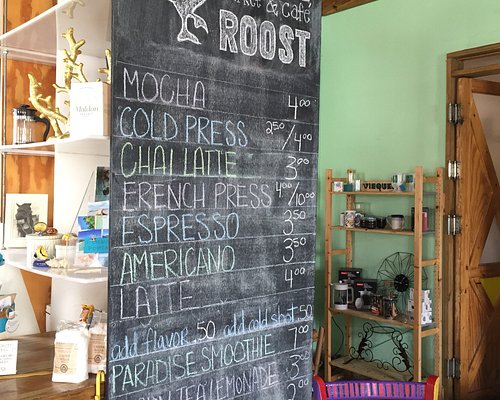 & café
ROOST
MOCHA 4.00
COLD PRESS 2.50/4.00
CHAI LATTE 3.00
FRENCH PRESS 4.00/10.00
ESPRESSO 3.50
AMERICANO 3.50
LATTE 4.00
add flavor .50 add cold shot .50
PARADISE SMOOTHIE 7.00
TEA LEMONADE
2.00
VIEQUE
Maldon